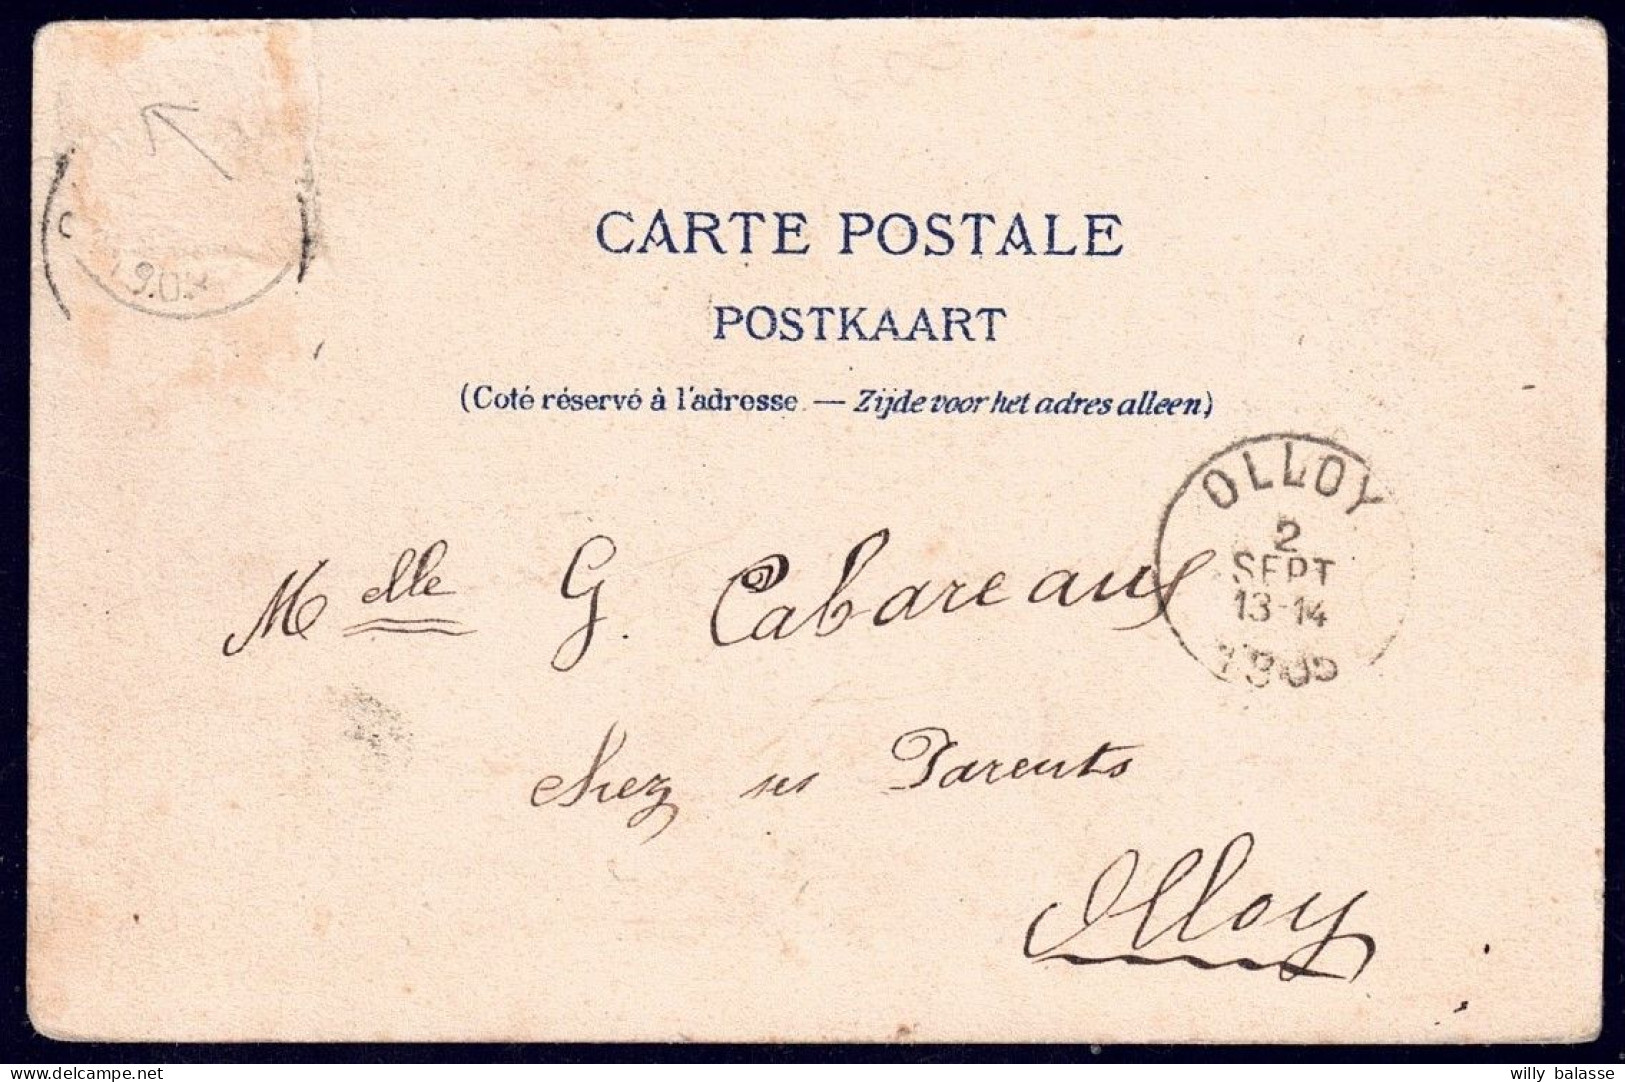 CARTE POSTALE
POSTKAART
(Coté réservé à l'adresse. — Zijde voor het adres alleen)
OLLOY
2
SEPT
13-14
Melle G. Cabareaux
chez ses Parents
Olloy
delcampe.net
willy balasse